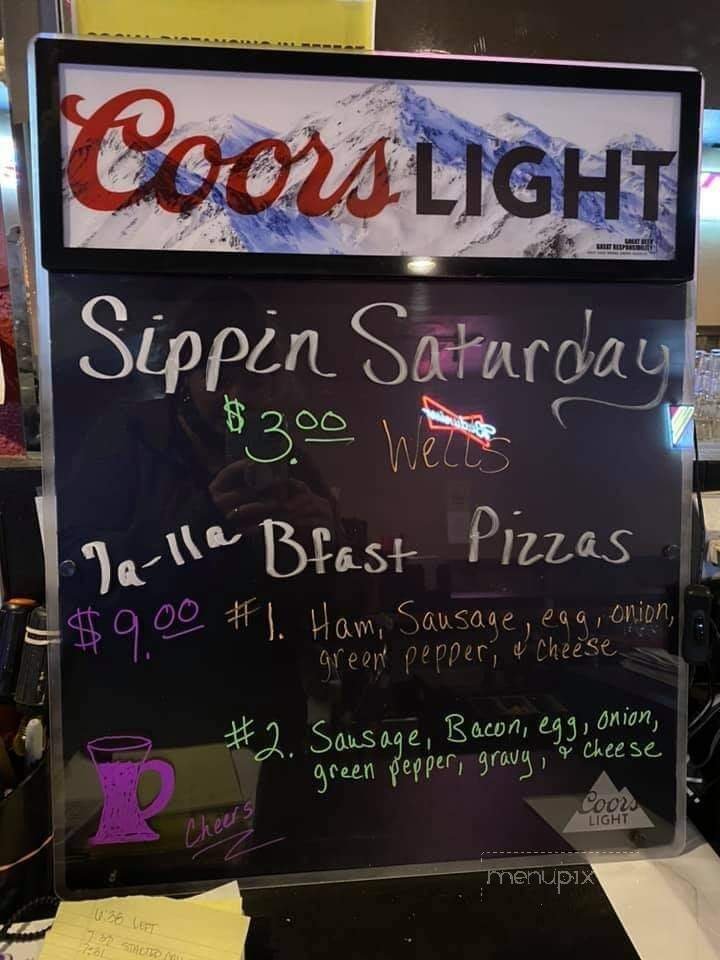 Coors LIGHT
GREAT BEER
GREAT RESPONSIBILITY
Sippin Saturday
$3.00 Wells
Budweiser
7a-11a Bfast Pizzas
$9.00 #1. Ham, Sausage, egg, onion,
green pepper, & cheese
#2. Sausage, Bacon, egg, onion,
green pepper, gravy, & cheese
Cheers
Coors
LIGHT
menupix